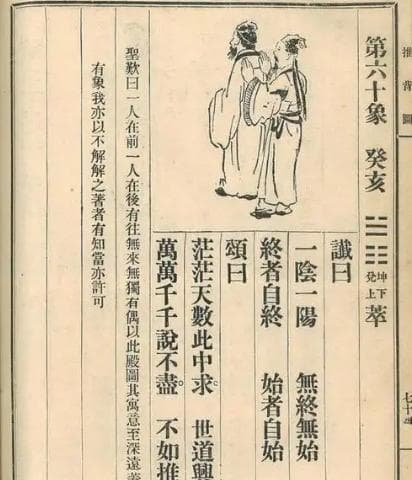 推背圖
七十
第六十象 癸亥 坤下兌上 萃
讖曰
一陰一陽 無終無始
終者自終 始者自始
頌曰
茫茫天數此中求 世道興
萬萬千千說不盡。 不如推
聖歎曰一人在前一人在後有往無來無獨有偶以此殿圖其寓意至深遠
有象我亦以不解解之著者有知當亦許可